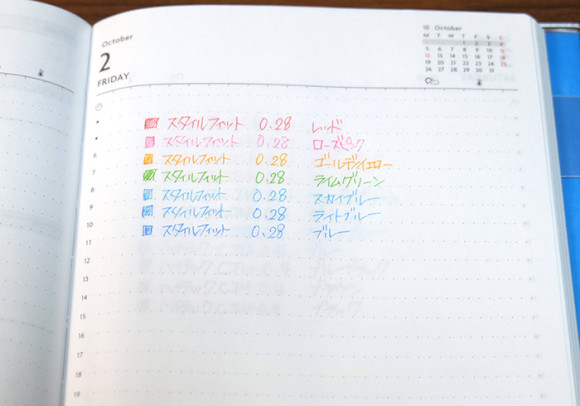 October
2
FRIDAY
10 October
M T W T F S S
1 2 3 4
5 6 7 8 9 10 11
12 13 14 15 16 17 18
19 20 21 22 23 24 25
26 27 28 29 30 31
スタイルフィット 0.28 レッド
スタイルフィット 0.28 ローズピンク
スタイルフィット 0.28 ゴールデンイエロー
スタイルフィット 0.28 ライムグリーン
スタイルフィット 0.28 スカイブルー
スタイルフィット 0.28 ライトブルー
スタイルフィット 0.28 ブルー
6
7
8
9
10
11
12
13
14
15
16
17
18
19